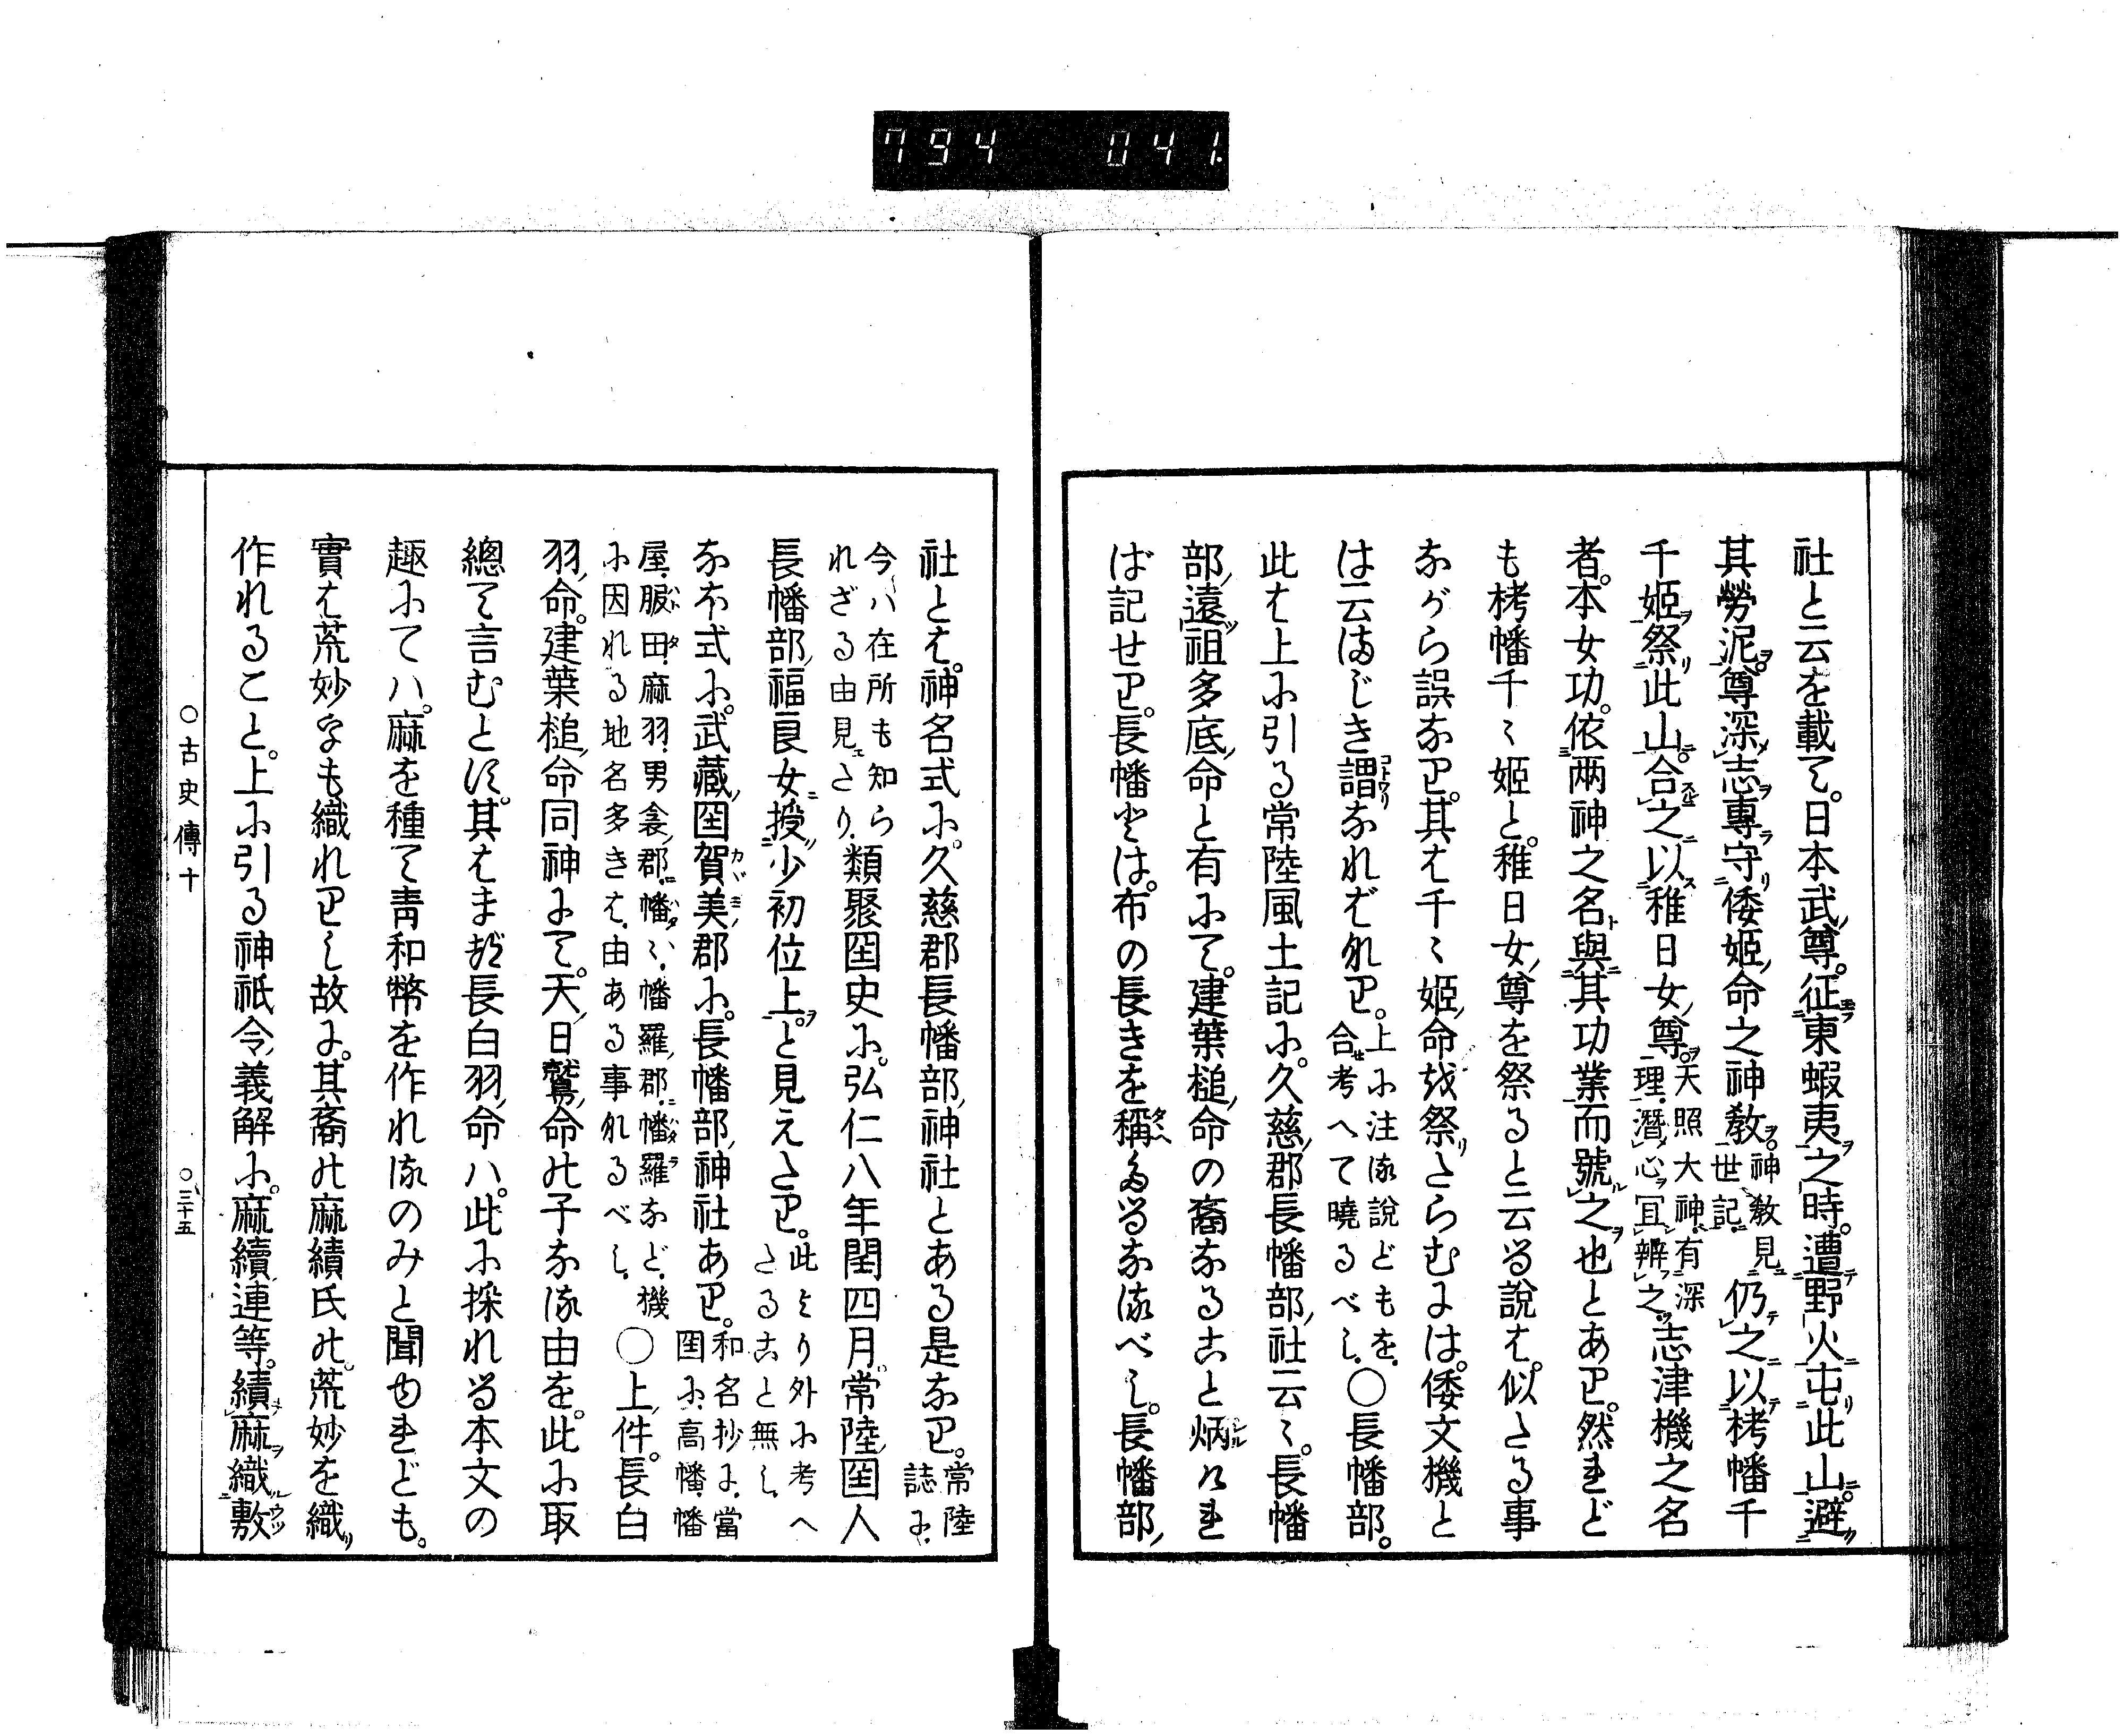 794 041.
社と云を載て。日本武尊。征東蝦夷之時。遭野火屯此山避
其勞泥。尊深志專守倭姬命之神敎。神敎見世記。仍之以栲幡千
千姬祭此山。合之以稚日女尊。天照大神有深理。潛心宜辨之。志津機之名
者。本女功。依兩神之名與其功業而號之也とあり。然れど
も栲幡千〻姬と。稚日女尊を祭ると云る說は。似たる事
ながら誤なり。其は千〻姬命を祭りたらむには。倭文機と
は云まじき謂なればなり。上に注る說どもを。合考へて曉るべし。○長幡部。
此は上に引る常陸風土記に。久慈郡長幡部社云〻。長幡
部遠祖多底命と有にて。建葉槌命の裔なること炳ければ
ば記せり。長幡とは。布の長きを稱たるなるべし。長幡部
社とは。神名式に。久慈郡長幡部神社とある是なり。常陸誌に。
今ハ在所も知られざる由見えたり。類聚国史に。弘仁八年閏四月常陸国人
長幡部福良女授少初位上と見えたり。此より外に考へたること無し。
なほ式に。武藏国賀美郡に。長幡部神社あり。和名抄に。當国に。高幡。幡
屋。䐁田。麻羽。男衾郡幡〻。幡羅郡幡羅など。機に因れる地名多きは。由ある事なるべし。○上件。長白
羽命。建葉槌命同神にて。天日鷲命の子なる由を。此に取
總て言むとす。其はまづ長白羽命ハ。此に採れる本文の
趣にてハ。麻を種て青和幣を作れるのみと聞ゆれども。
實は荒妙をも織れりし故に。其裔の麻績氏の。荒妙を織
作れること。上に引る神祇令義解に。麻續連等。績麻織敷
○古史傳十　○三十五